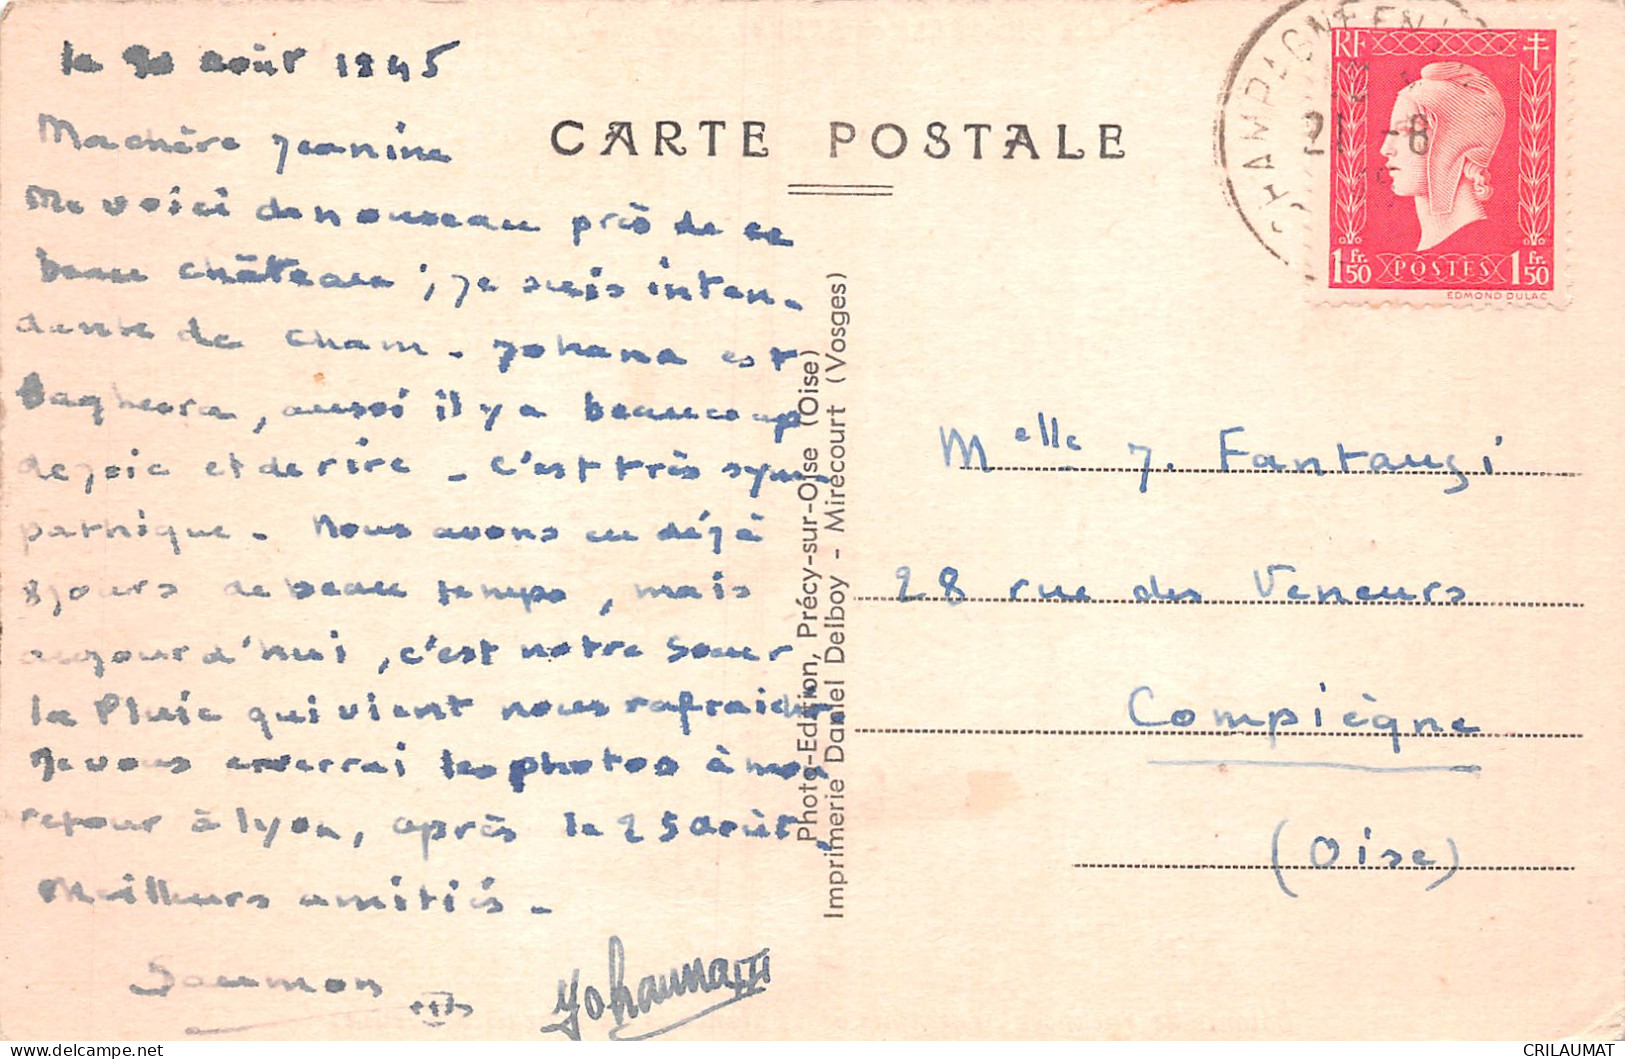 le 20 août 1945
Ma chère Jeanine
Me voici de nouveau près de ce
beau château ; je suis inten-
dente de cham. Johana est
, aussi il y a beaucoup
de joie et de rire - C'est très sym-
pathique - Nous avons eu déjà
8 jours de beau temps, mais
aujourd'hui, c'est notre Soeur
la Pluie qui vient nous rafraichir
Je vous enverrai les photos à mon
retour à Lyon, après le 25 août,
Meilleurs amitiés -
Saumon
Johanna
CARTE POSTALE
Photo-Edition, Précy-sur-Oise (Oise)
Imprimerie Daniel Delboy - Mirecourt (Vosges)
CHAMPAGNE EN
21 -8
RF
1 Fr. 50 POSTES 1 Fr. 50
EDMOND DULAC
Melle J. Fantauzi
28 rue des Veneurs
Compiègne
(Oise)
CRILAUMAT